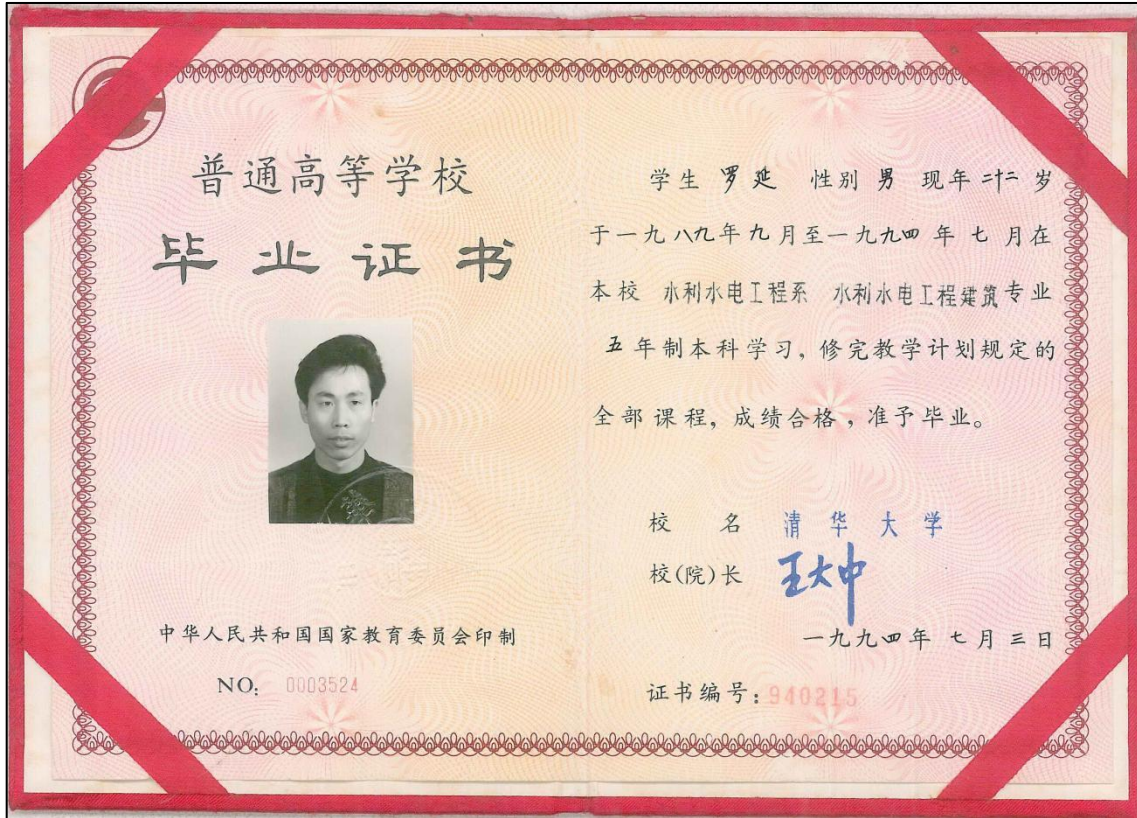 普通高等学校
毕业证书
中华人民共和国国家教育委员会印制
NO: 0003524
学生 罗延 性别 男 现年 二十二 岁
于一九八九年九月至一九九四年七月在
本校 水利水电工程系 水利水电工程建筑专业
五年制本科学习, 修完教学计划规定的
全部课程, 成绩合格, 准予毕业。
校 名 清华大学
校(院)长 王大中
一九九四年 七月三日
证书编号: 940215